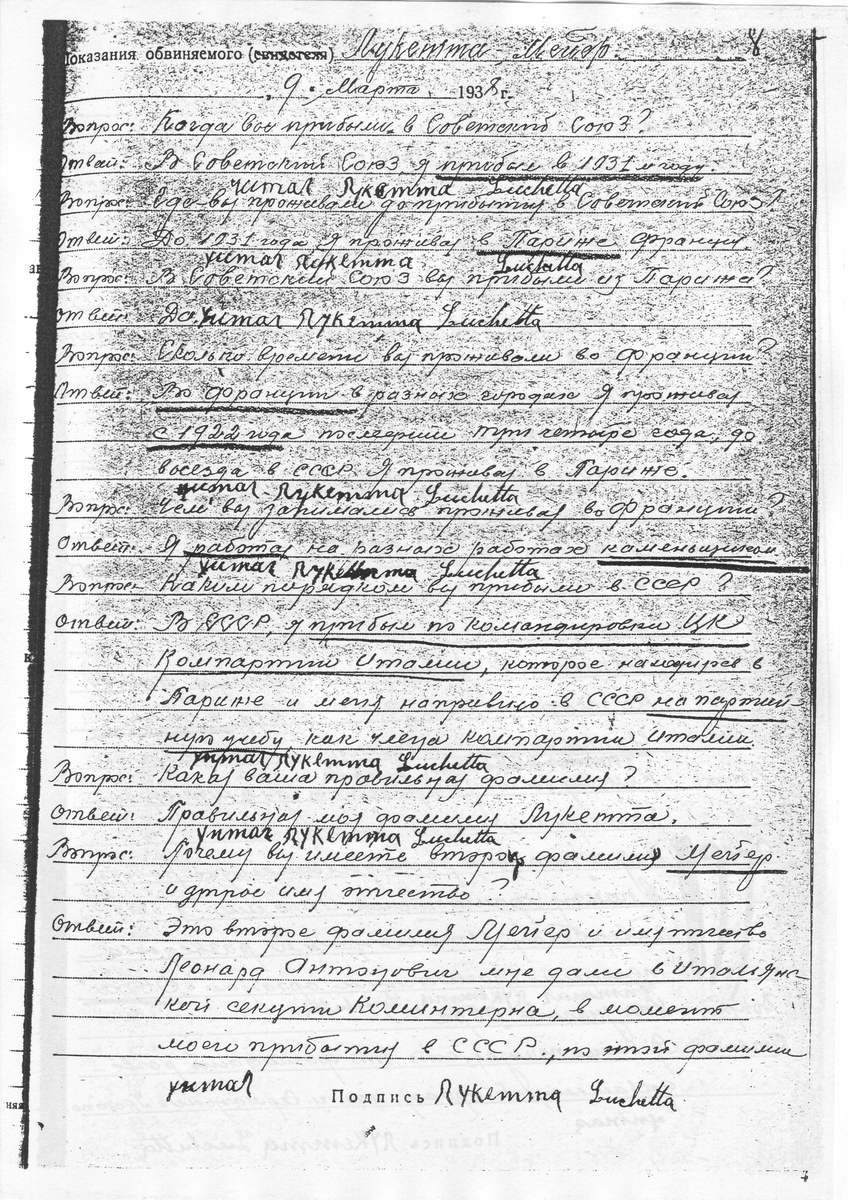 8
Показания обвиняемого (свидетеля) Лукетта-Мейер.
9. Марта 1938 г.
Вопрос: Когда вы прибыли в Советский Союз?
Ответ: В Советский Союз я прибыл в 1931 м году.
читал Лукетта Luchetta
Вопрос: Где вы проживали до прибытия в Советский Союз?
Ответ: До 1931 года я проживал в Париже Франция.
читал Лукетта Luchetta
Вопрос: В Советский Союз вы прибыли из Парижа?
Ответ: Да. читал Лукетта Luchetta
Вопрос: Сколько времени вы проживали во Франции?
Ответ: Во Франции в разных городах я проживал
с 1922 года последнии три четыре года, до
выезда в СССР я проживал в Париже.
читал Лукетта Luchetta
Вопрос: Чем вы занимались проживая во Франции?
Ответ: Я работал на разных работах каменьщиком
читал Лукетта Luchetta
Вопрос: Каким порядком вы прибыли в СССР?
Ответ: В СССР, я прибыл по командировки ЦК
Компартии Италии, которое находилрсь в
Париже и меня направило в СССР на партий-
ную учебу как члена компартии Италии
читал Лукетта Luchetta
Вопрос: Какая ваша правильная фамилия?
Ответ: Правильная моя фамилия Лукетта.
читал Лукетта Luchetta
Вопрос: Почему вы имеете вторую фамилию Мейер
и другое имя отчество?
Ответ: Это второе фамилия Мейер и имя отчество
Леонард Антонович мне дали в Итальянс-
кой секции Коминтерна, в момент
моего прибытия в СССР., по этой фамилии
читал Подпись Лукетта Luchetta